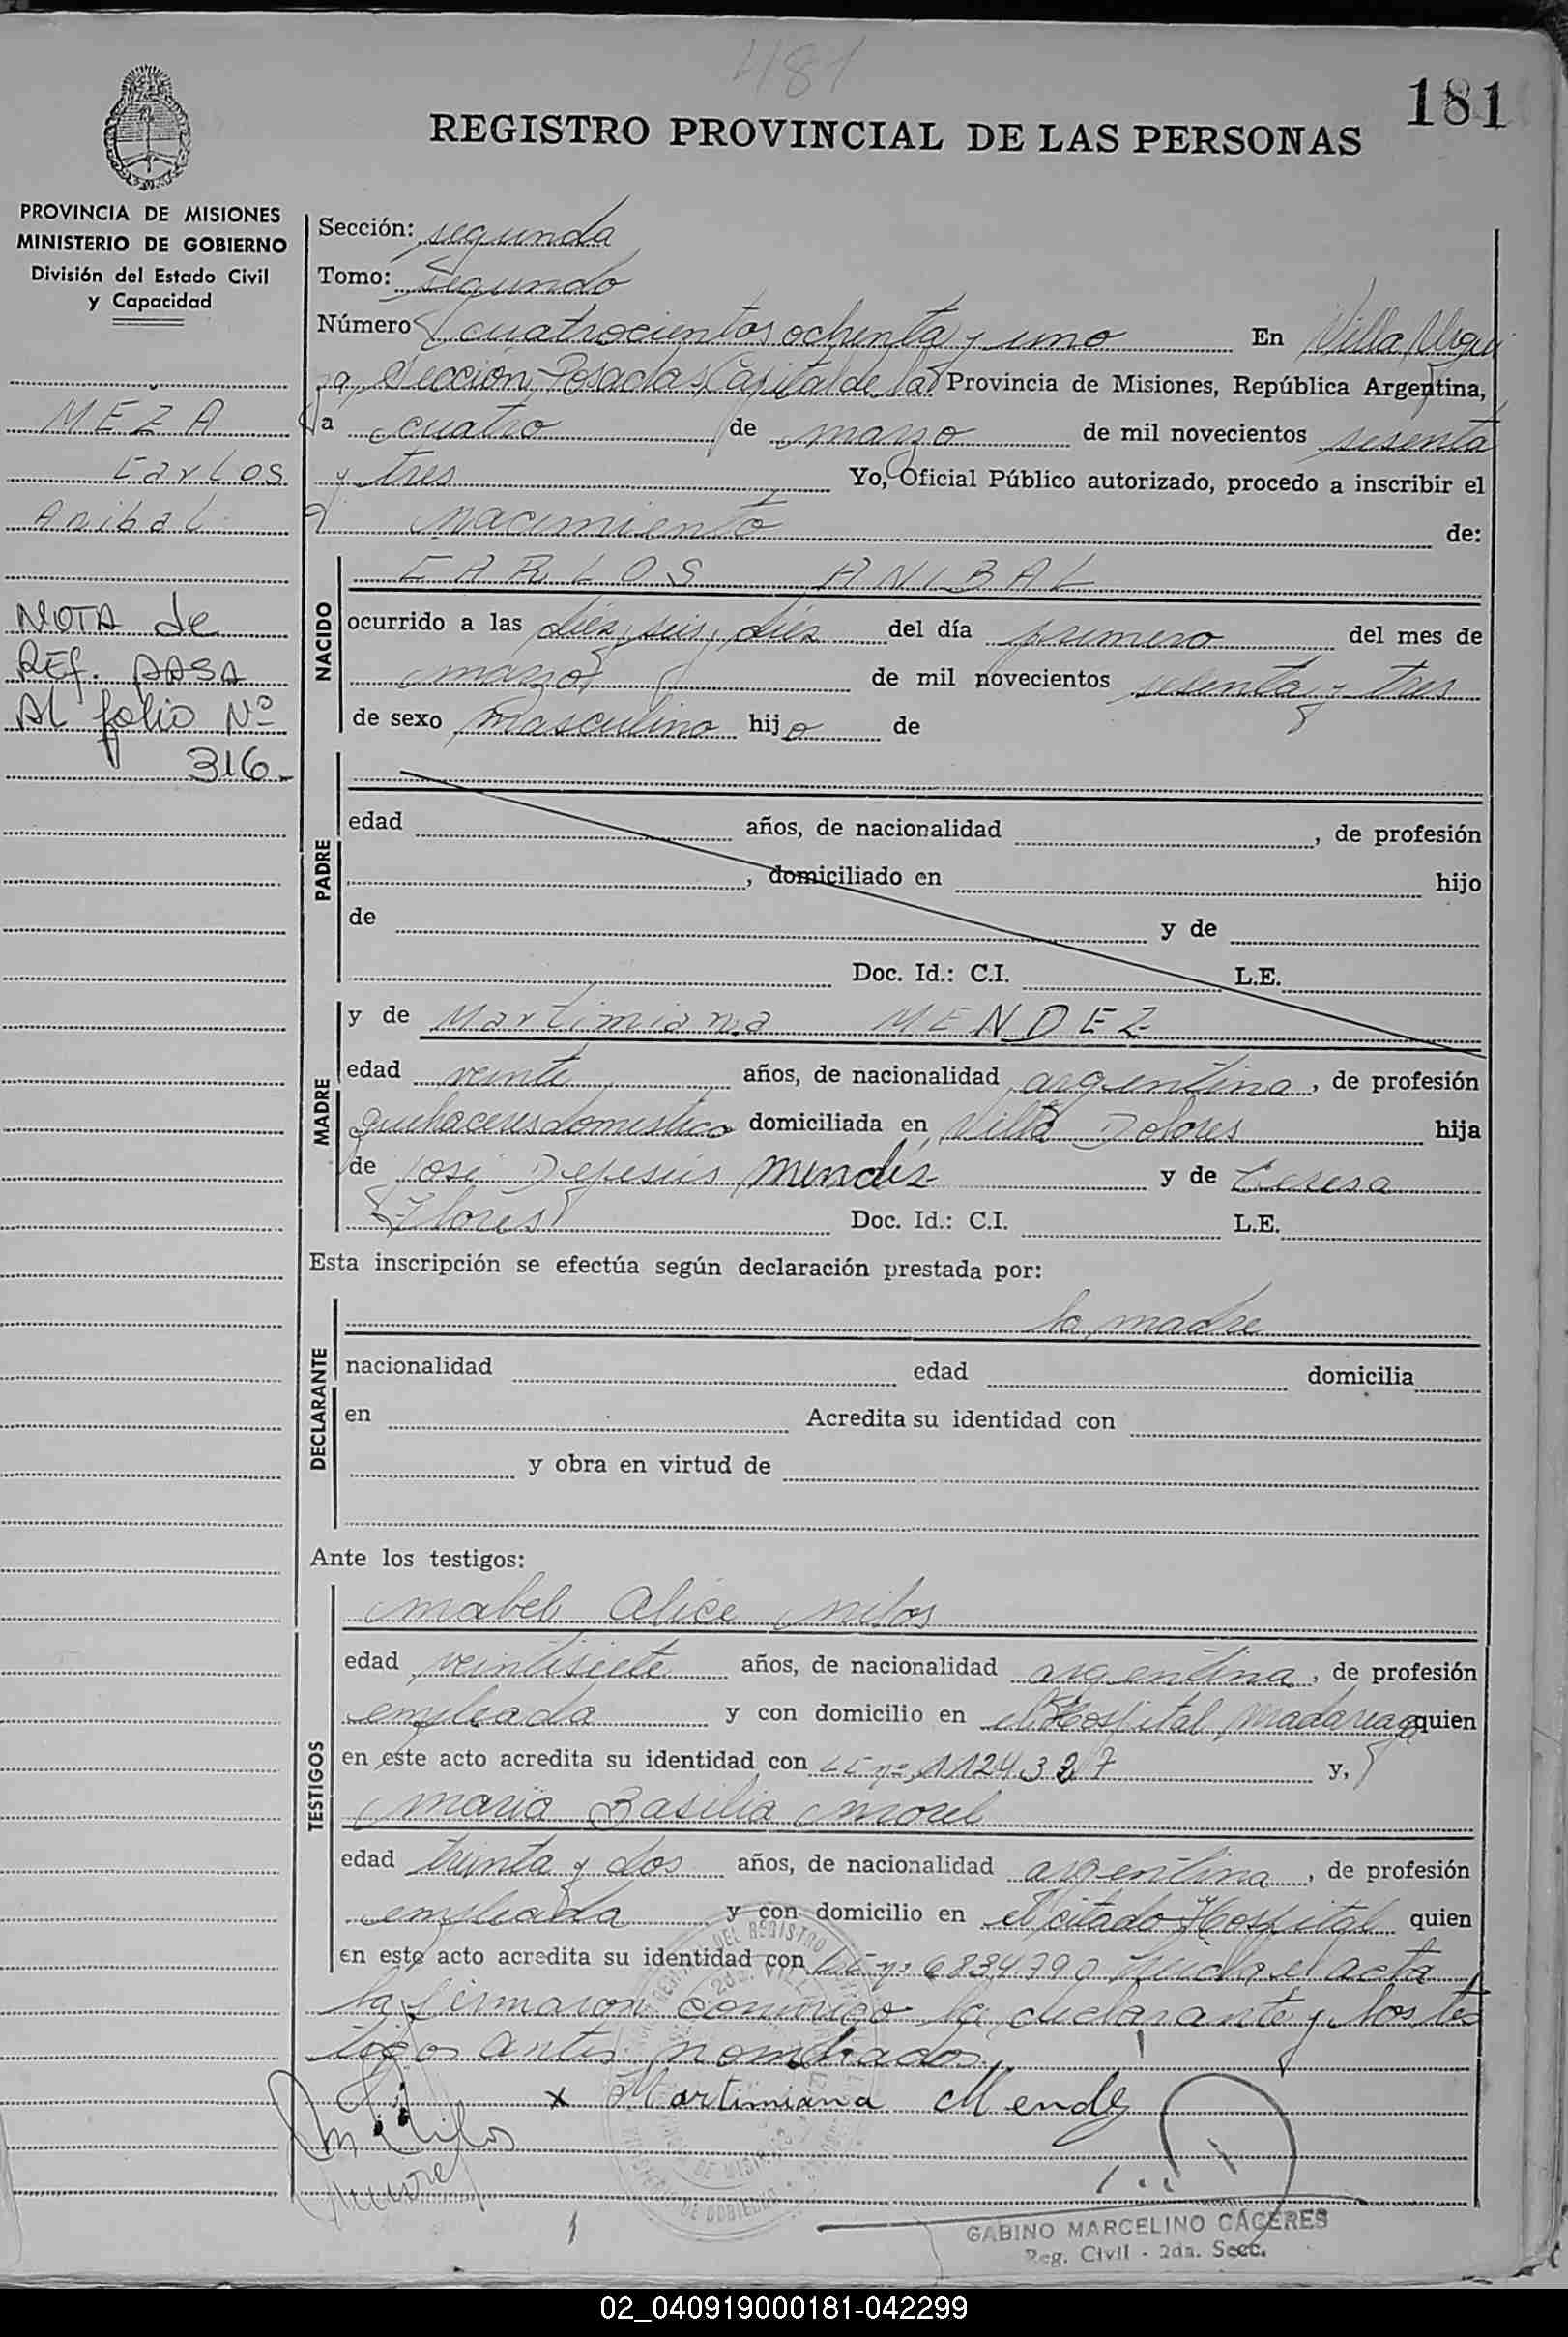 481
181
REGISTRO PROVINCIAL DE LAS PERSONAS
PROVINCIA DE MISIONES
MINISTERIO DE GOBIERNO
División del Estado Civil
y Capacidad
MEZA
Carlos
Anibal
NOTA de
REF. PASA
Al folio Nº
316-
Sección: segunda
Tomo: Segundo
Número cuatrocientos ochenta y uno En Villa Urqui
za, Sección, Posadas, Capital de la Provincia de Misiones, República Argentina,
a cuatro de marzo de mil novecientos sesenta
y tres Yo, Oficial Público autorizado, procedo a inscribir el
nacimiento de:
NACIDO
CARLOS ANIBAL
ocurrido a las diez y seis, diez del día primero del mes de
marzo de mil novecientos sesenta y tres
de sexo masculino hijo de
PADRE
edad años, de nacionalidad , de profesión
, domiciliado en hijo
de y de
Doc. Id.: C.I. L.E.
MADRE
y de Martimiana MENDEZ
edad veinte años, de nacionalidad argentina, de profesión
quehaceres domestico domiciliada en Villa Dolores hija
de José Dejesús Mendez y de Teresa
Flores Doc. Id.: C.I. L.E.
Esta inscripción se efectúa según declaración prestada por:
DECLARANTE
la madre
nacionalidad edad domicilia
en Acredita su identidad con
y obra en virtud de
Ante los testigos:
TESTIGOS
Mabel Alice Milos
edad veintisiete años, de nacionalidad argentina, de profesión
empleada y con domicilio en el Hospital Madariaga quien
en este acto acredita su identidad con LC nº 1124327 y,
María Basilia Morel
edad treinta y dos años, de nacionalidad argentina, de profesión
empleada y con domicilio en el citado Hospital quien
en este acto acredita su identidad con LC nº 6834790 leída el acta
la firmaron conmigo la declarante y los tes
tigos antes nombrados.
x Martimiana Mendez
GABINO MARCELINO CACERES
Reg. Civil - 2da. Secc.
02_040919000181-042299